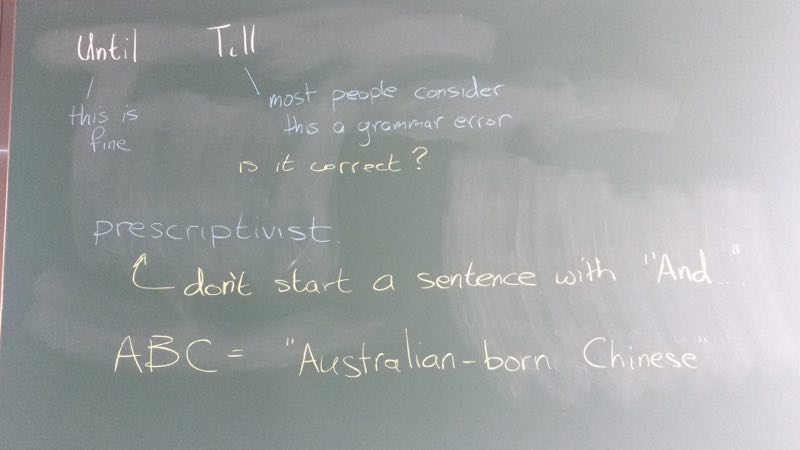 Until Till
this is
fine
most people consider
this a grammar error
is it correct?
prescriptivist.
don't start a sentence with "And..."
ABC = "Australian-born Chinese"